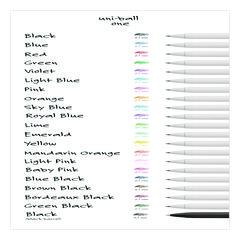 uni-ball
one
Black
Blue
Red
Green
Violet
Light Blue
Pink
Orange
Sky Blue
Royal Blue
Lime
Emerald
Yellow
Mandarin Orange
Light Pink
Baby Pink
Blue Black
Brown Black
Bordeaux Black
Green Black
Black